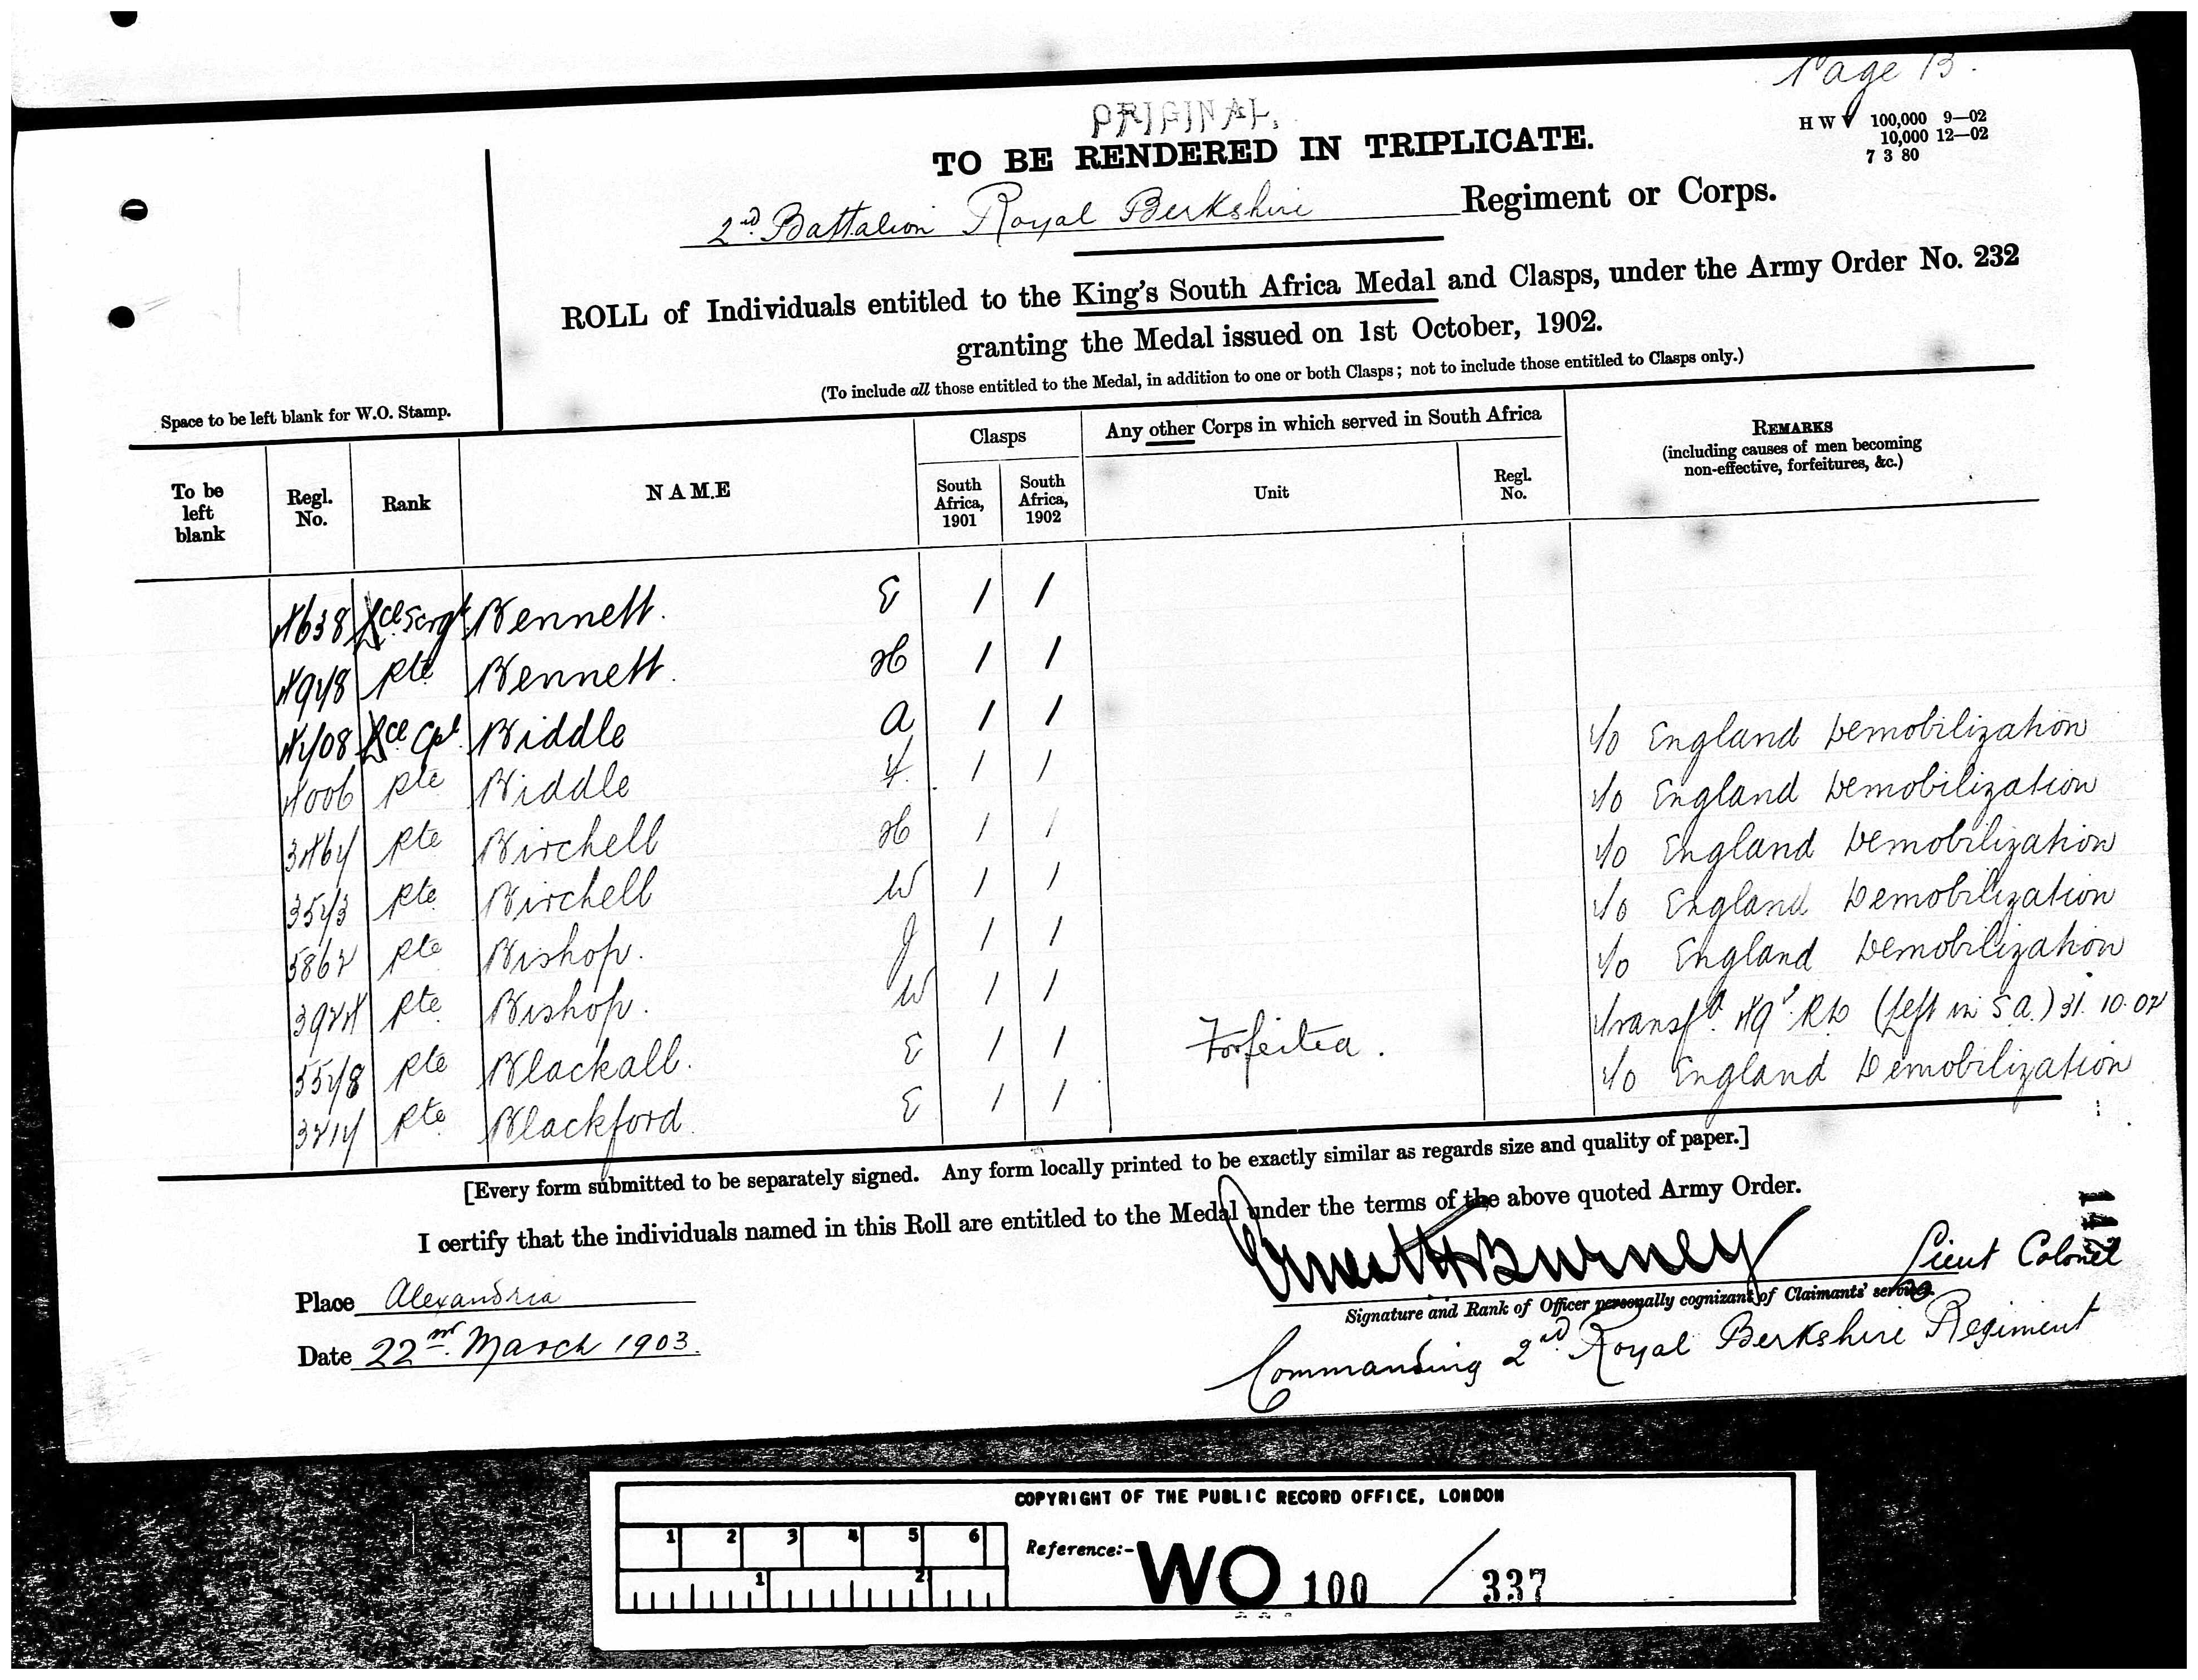 Page 13.
ORIGINAL.
TO BE RENDERED IN TRIPLICATE.
H W V 100,000 9—02
10,000 12—02
7 3 80
2nd Battalion Royal Berkshire Regiment or Corps.
ROLL of Individuals entitled to the King's South Africa Medal and Clasps, under the Army Order No. 232
granting the Medal issued on 1st October, 1902.
(To include all those entitled to the Medal, in addition to one or both Clasps; not to include those entitled to Clasps only.)
Space to be left blank for W.O. Stamp.
To be left blank Regl. No. Rank NAME Clasps South Africa, 1901 South Africa, 1902 Any other Corps in which served in South Africa Unit Regl. No. REMARKS (including causes of men becoming non-effective, forfeitures, &c.)
4638 Lce Sergt Bennett. E 1 1
4978 Pte Bennett. H 1 1
4708 Lce Cpl. Biddle A 1 1
4006 Pte Biddle F. 1 1 To England Demobilization
3467 Pte Birchell H 1 1 To England Demobilization
3573 Pte Birchell W 1 1 To England Demobilization
5862 Pte Bishop. J 1 1 To England Demobilization
3924 Pte Bishop. W 1 1 To England Demobilization
5578 Pte Blackall. E 1 1 Forfeited. Transfd. (Left in S.A.) 31.10.02
3217 Pte Blackford E 1 1 To England Demobilization
[Every form submitted to be separately signed. Any form locally printed to be exactly similar as regards size and quality of paper.]
I certify that the individuals named in this Roll are entitled to the Medal under the terms of the above quoted Army Order.
Burney Lieut Colonel
Place Alexandria
Signature and Rank of Officer personally cognizant of Claimants' service.
Date 22nd March 1903.
Commanding 2nd Royal Berkshire Regiment
COPYRIGHT OF THE PUBLIC RECORD OFFICE, LONDON
1 2 3 4 5 6
Reference:- WO 100 / 337
1 2